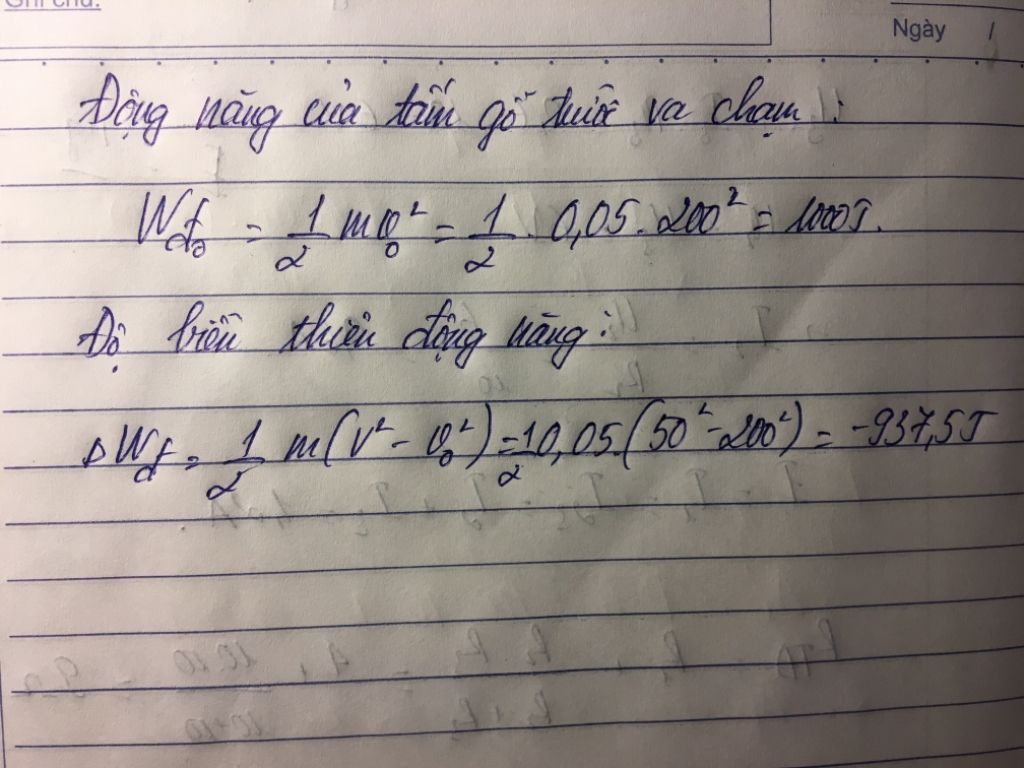 Ghi chú:
Ngày /
Động năng của tấm gỗ trước va chạm:
Wđ₀ = 1/2 mv₀² = 1/2 . 0,05 . 200² = 1000J.
Độ biến thiên động năng:
ΔWđ = 1/2 m(V² - v₀²) = 1/2 0,05.(50² - 200²) = -937,5J